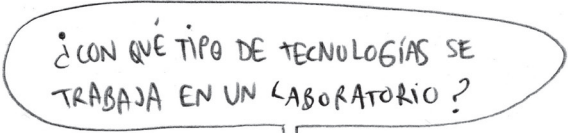 ¿CON QUÉ TIPO DE TECNOLOGÍAS SE
TRABAJA EN UN LABORATORIO?